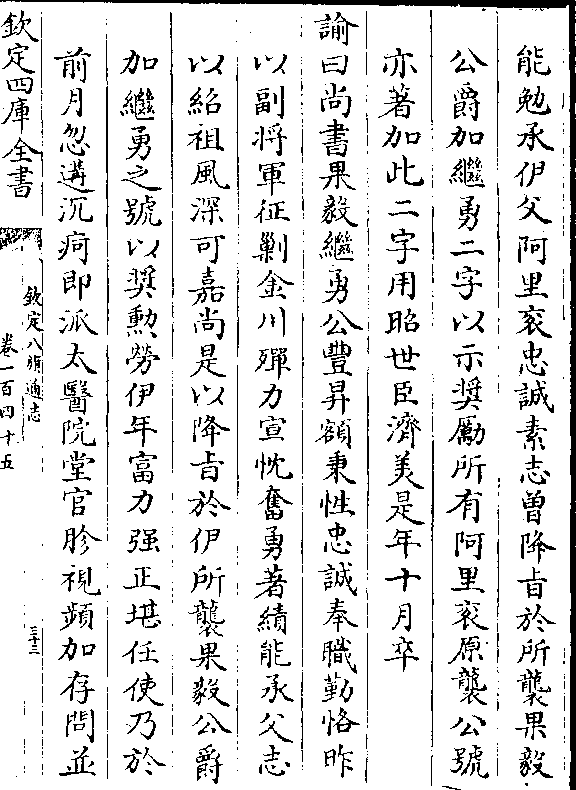 能勉承伊父阿里衮忠誠素志曽降㫖於所襲果毅
公爵加繼勇二字以示奬勵所有阿里衮原襲公號
亦著加此二字用昭世臣濟美是年十月卒
諭曰尚書果毅繼勇公豐昇額秉性忠誠奉職勤恪昨
以副将軍征剿金川殫力宣忱奮勇著績能承父志
以紹祖風深可嘉尚是以降㫖於伊所襲果毅公爵
加繼勇之號以奬勲勞伊年富力强正堪任使乃於
前月忽遘沉疴即派太醫院堂官胗視頻加存問並
欽定四庫全書
欽定八旗通志
卷一百四十五
三十三